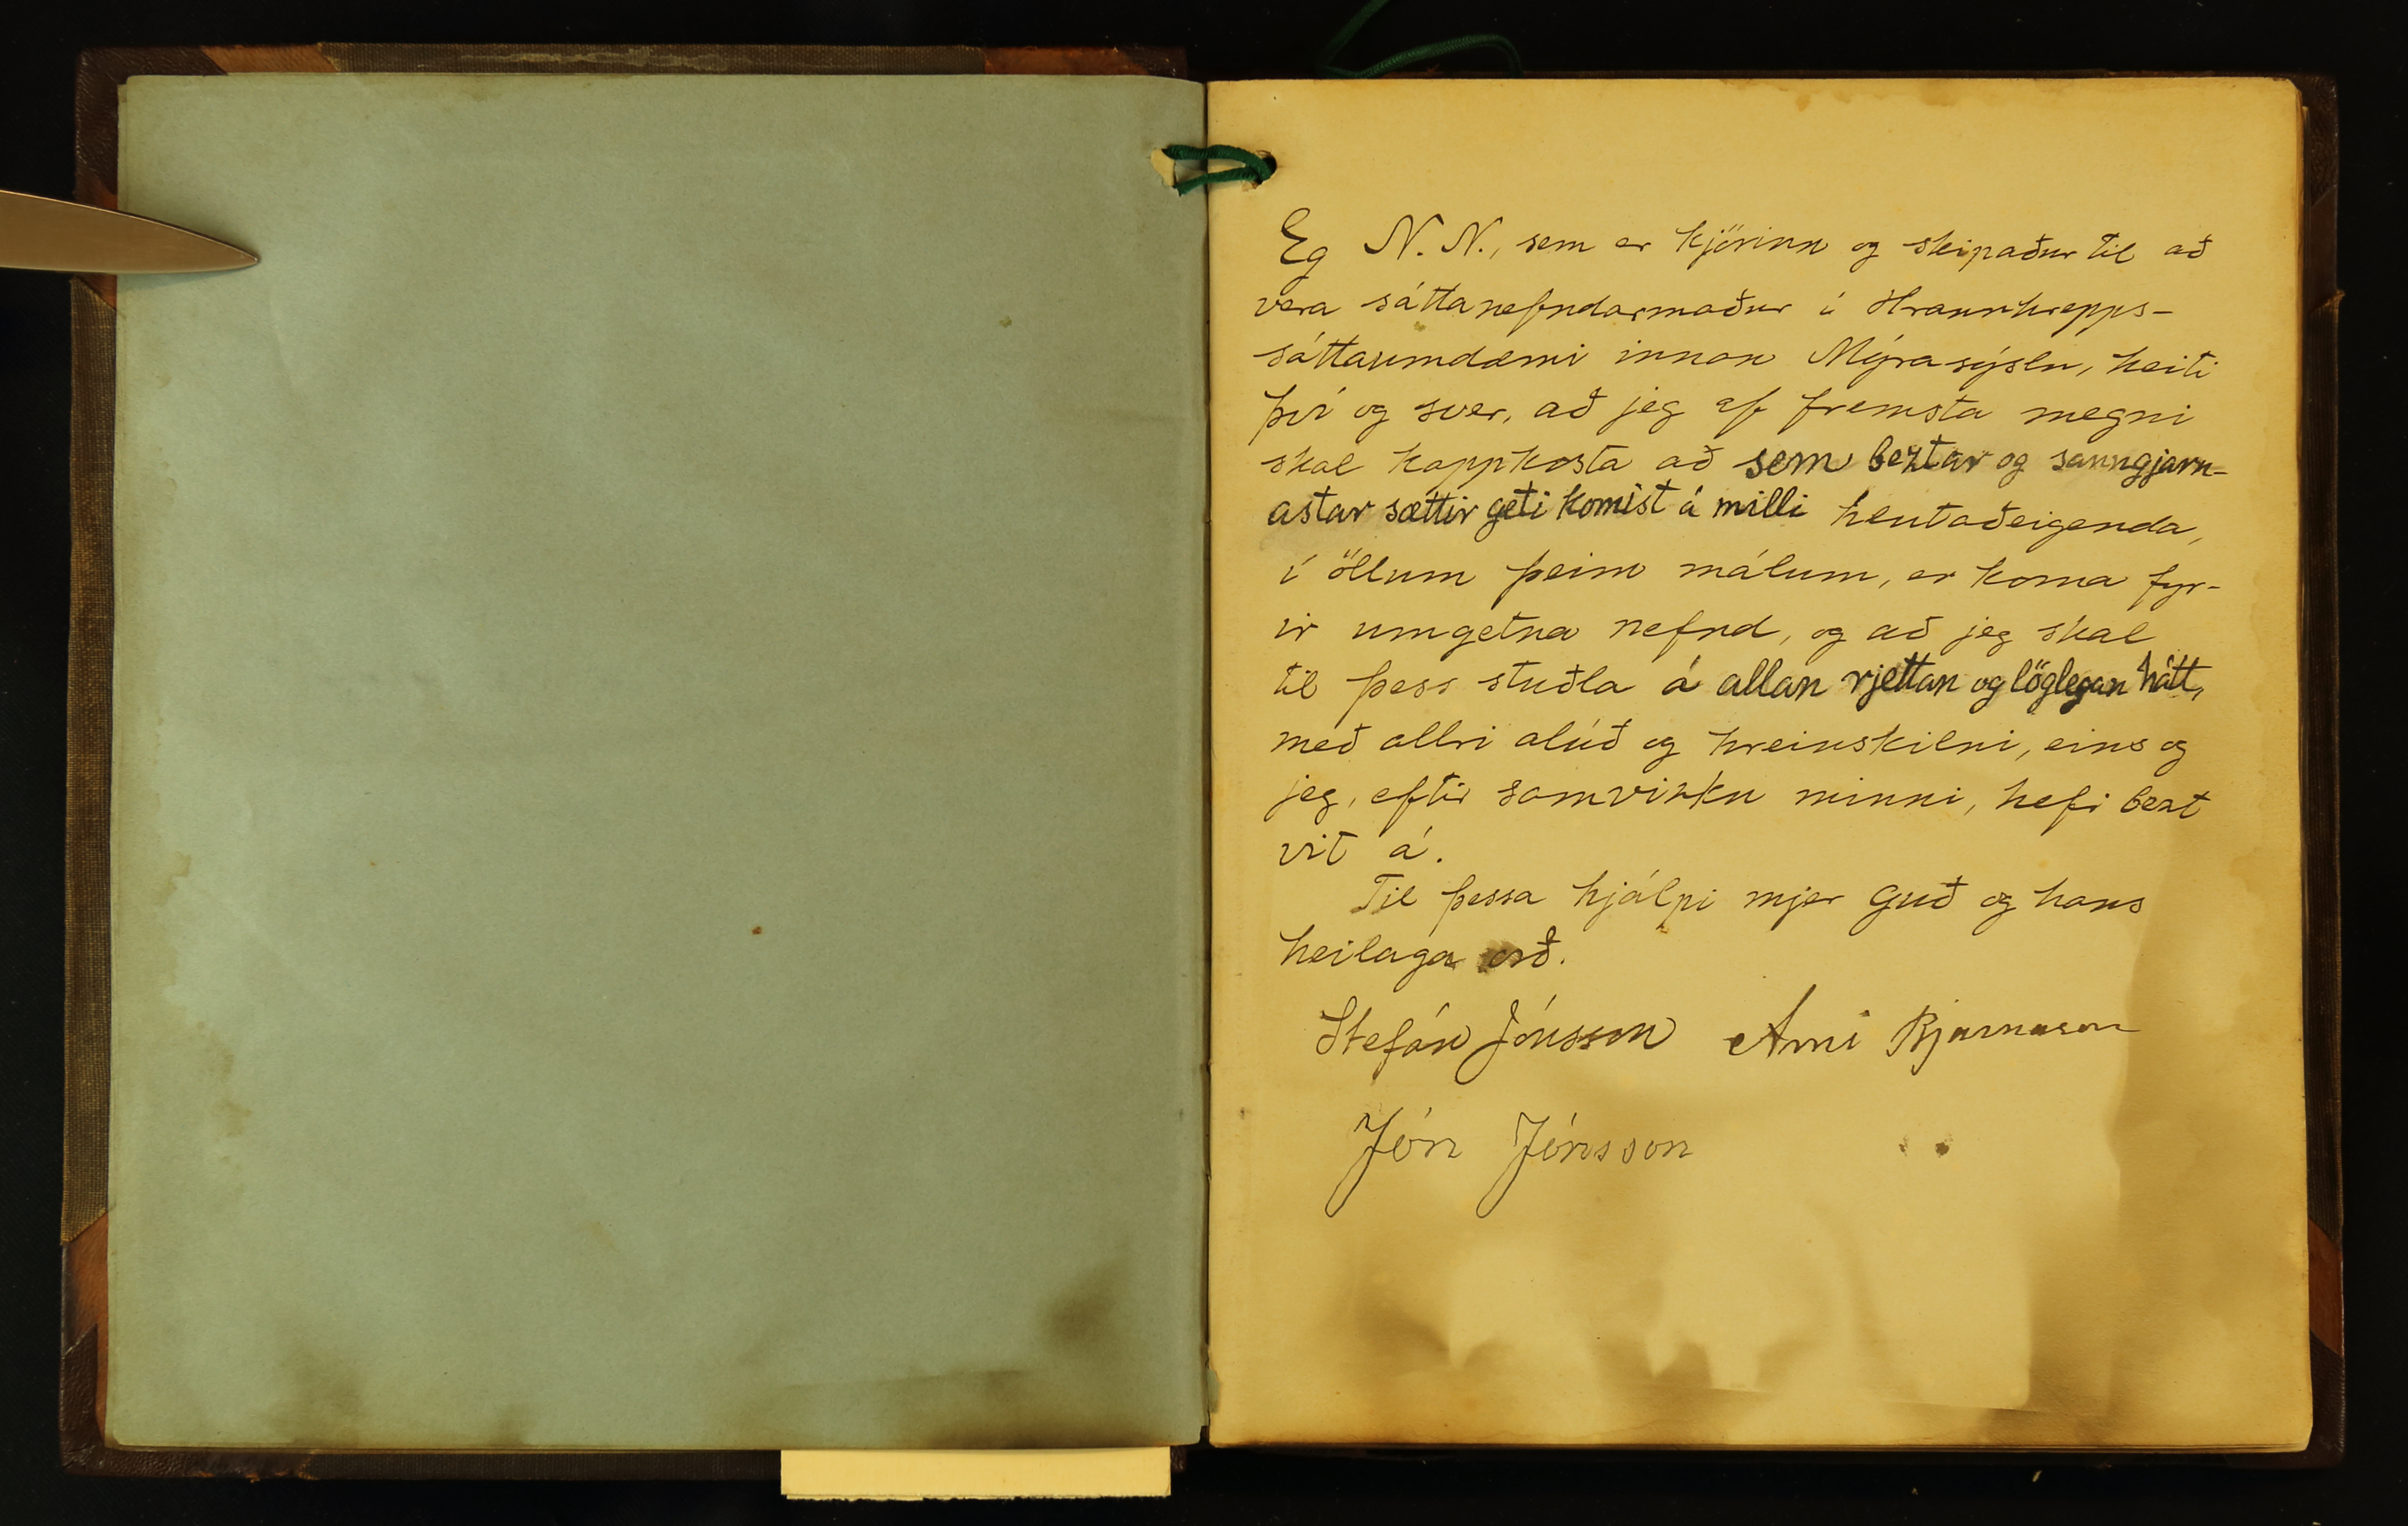 Eg N. N., sem er kjörinn og skipaður til að
vera sáttanefndarmaður í Hraunhrepps-
sáttaumdæmi innan Mýrasýslu, heiti
því og sver, að jeg af fremsta megni
skal kappkosta að sem beztar og sanngjarn-
astar sættir geti komist á milli hlutaðeigenda,
í öllum þeim málum, er koma fyr-
ir umgetna nefnd, og að jeg skal
til þess stuðla á allan rjettan og löglegan hátt,
með allri alúð og hreinskilni, eins og
jeg, eftir samvizku minni, hefi bezt
vit á.
Til þessa hjálpi mjer Guð og hans
heilaga orð.
Stefán Jónsson Árni Bjarnason
Jón Jónsson